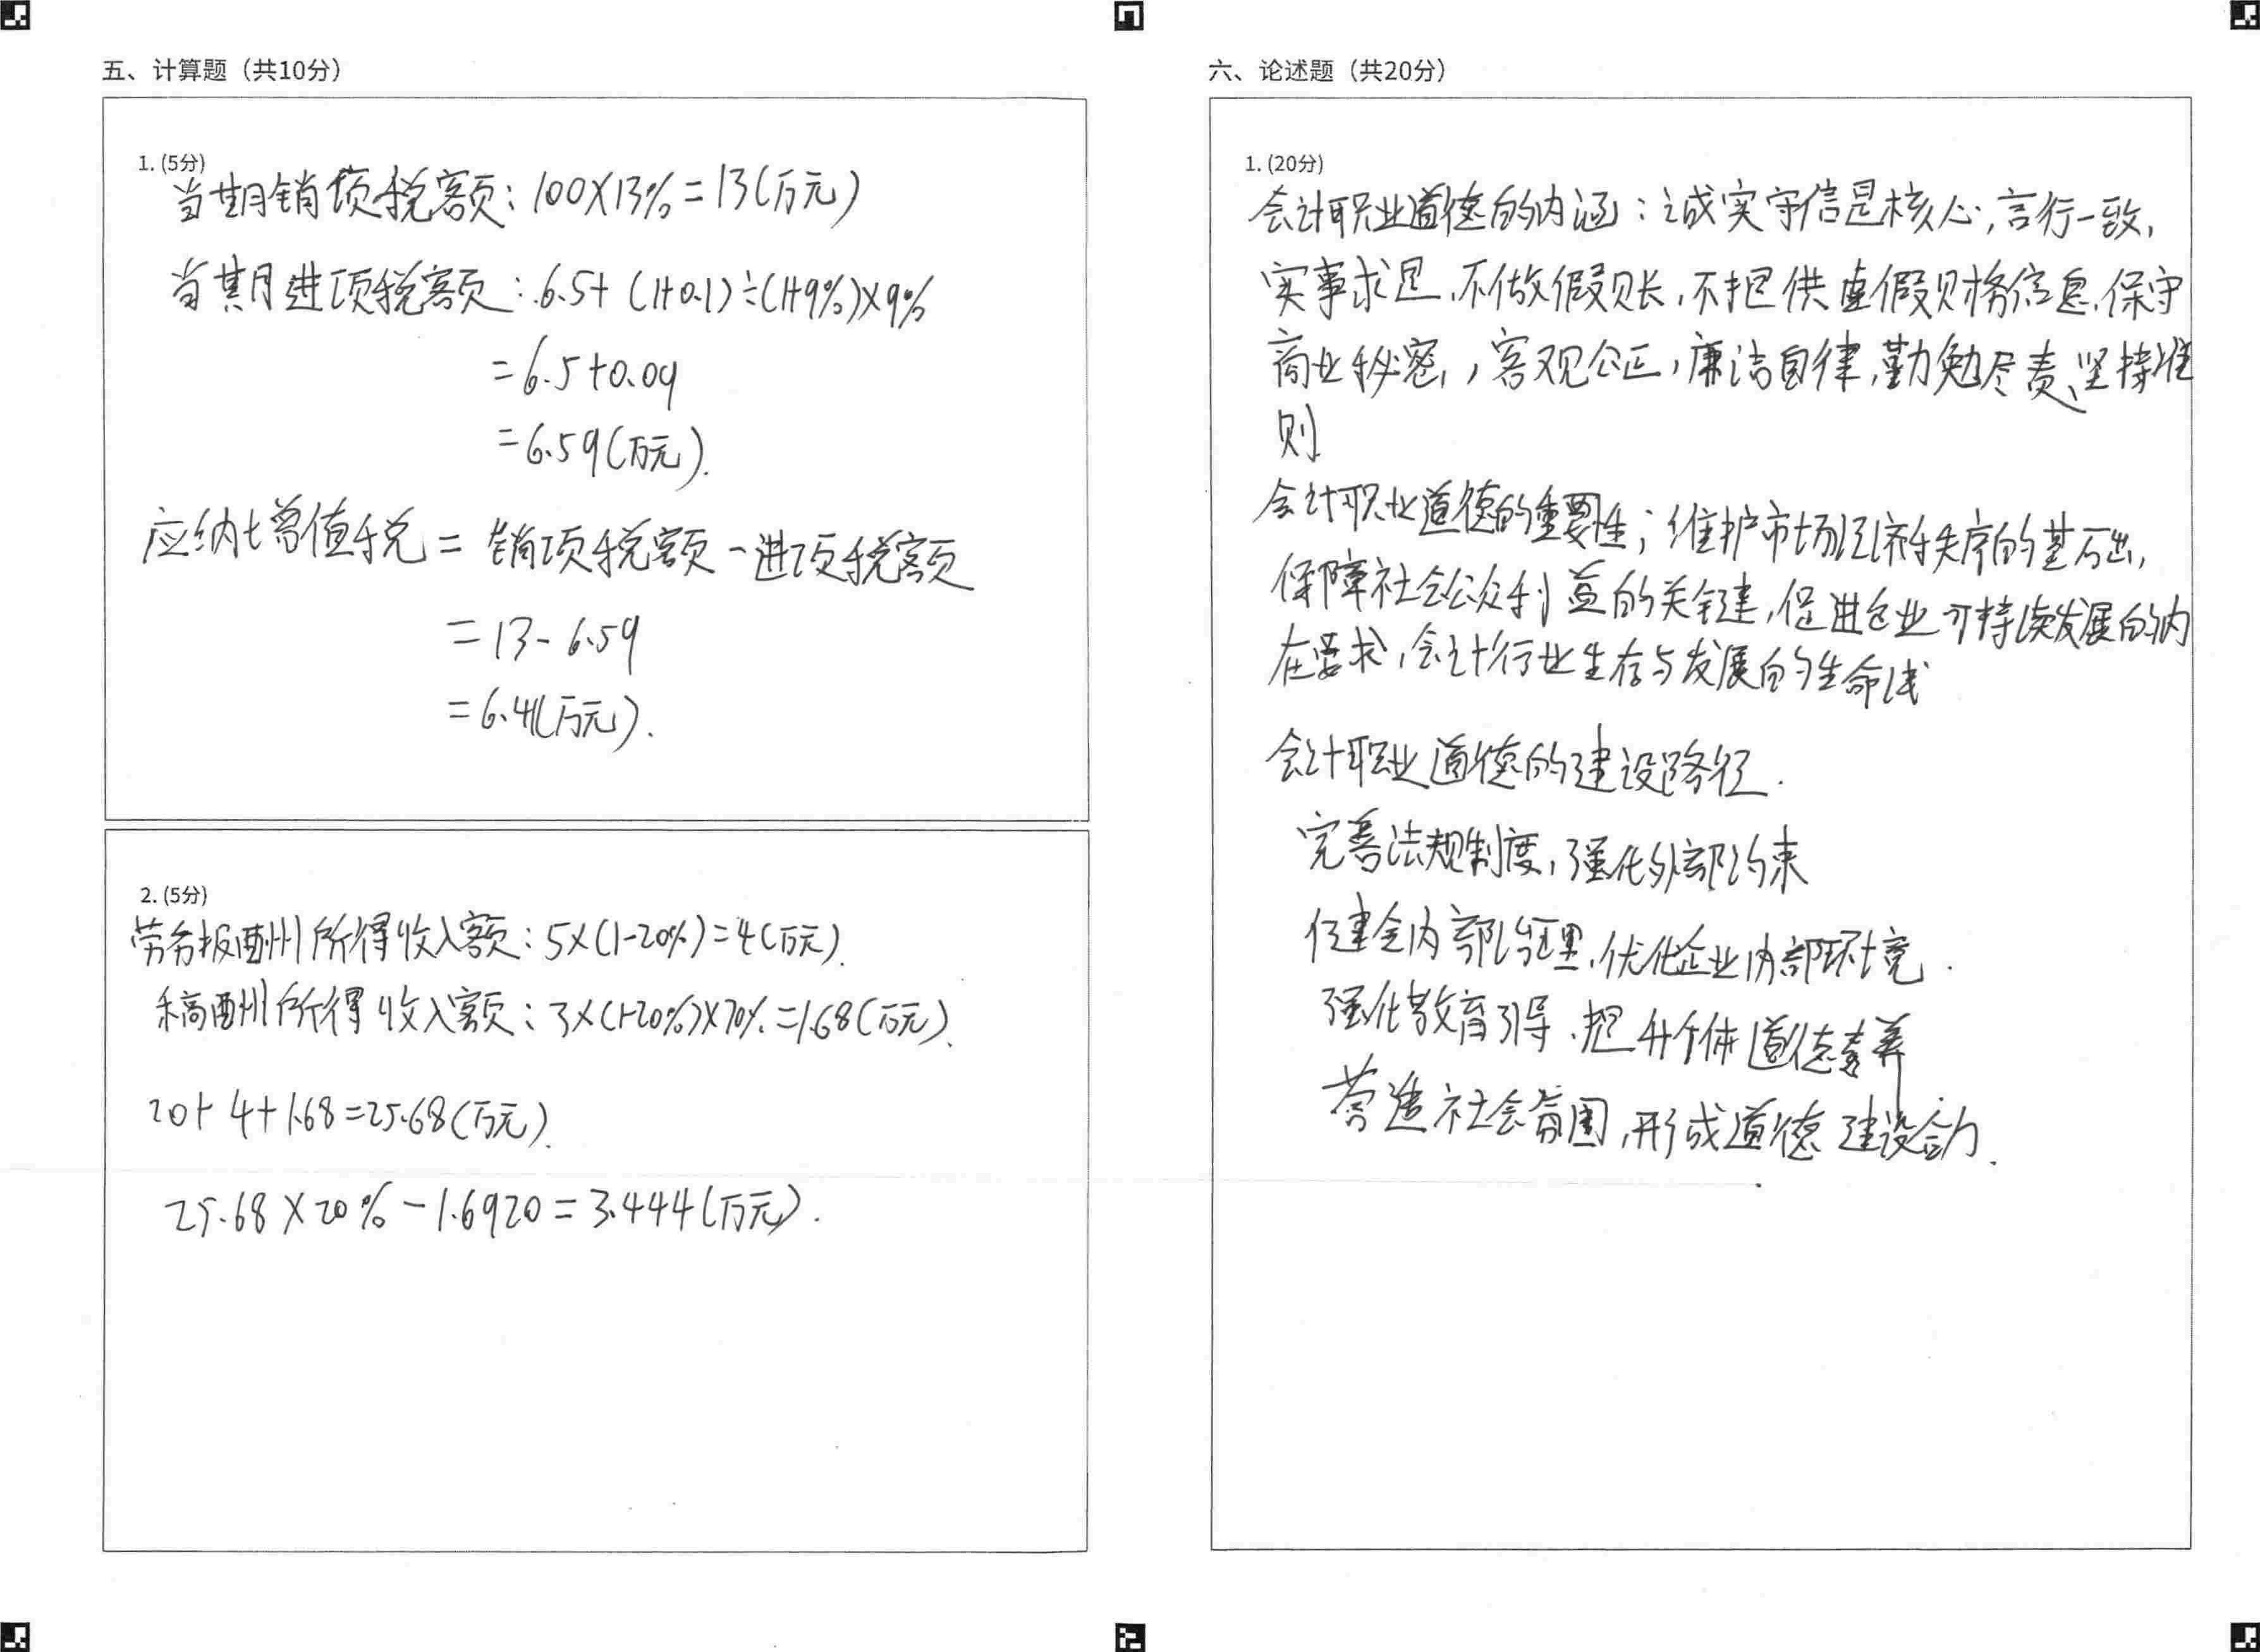 五、计算题（共10分）
1. (5分)
当期销项税额：100×13%=13(万元)
当期进项税额：6.5+(1+0.1)÷(1+9%)×9%
=6.5+0.09
=6.59(万元).
应纳增值税= 销项税额-进项税额
=13-6.59
=6.41(万元).
2. (5分)
劳务报酬所得收入额：5×(1-20%)=4(万元).
稿酬所得收入额：3×(1-20%)×70%=1.68(万元).
20+4+1.68=25.68(万元).
25.68×20%-1.6920=3.444(万元).
六、论述题（共20分）
1. (20分)
会计职业道德的内涵：诚实守信是核心，言行一致，
实事求是、不做假账，不提供虚假财务信息，保守
商业秘密，，客观公正，廉洁自律，勤勉尽责、坚持准
则
会计职业道德的重要性；维护市场经济秩序的基石出，
保障社会公众利益的关键，促进企业可持续发展的内
在要求，会计行业生存与发展的生命线
会计职业道德的建设路径.
完善法规制度，强化外部约束
健全内部治理，优化企业内部环境.
强化教育引导，提升个体道德素养
营造社会氛围，形成道德建设合力.